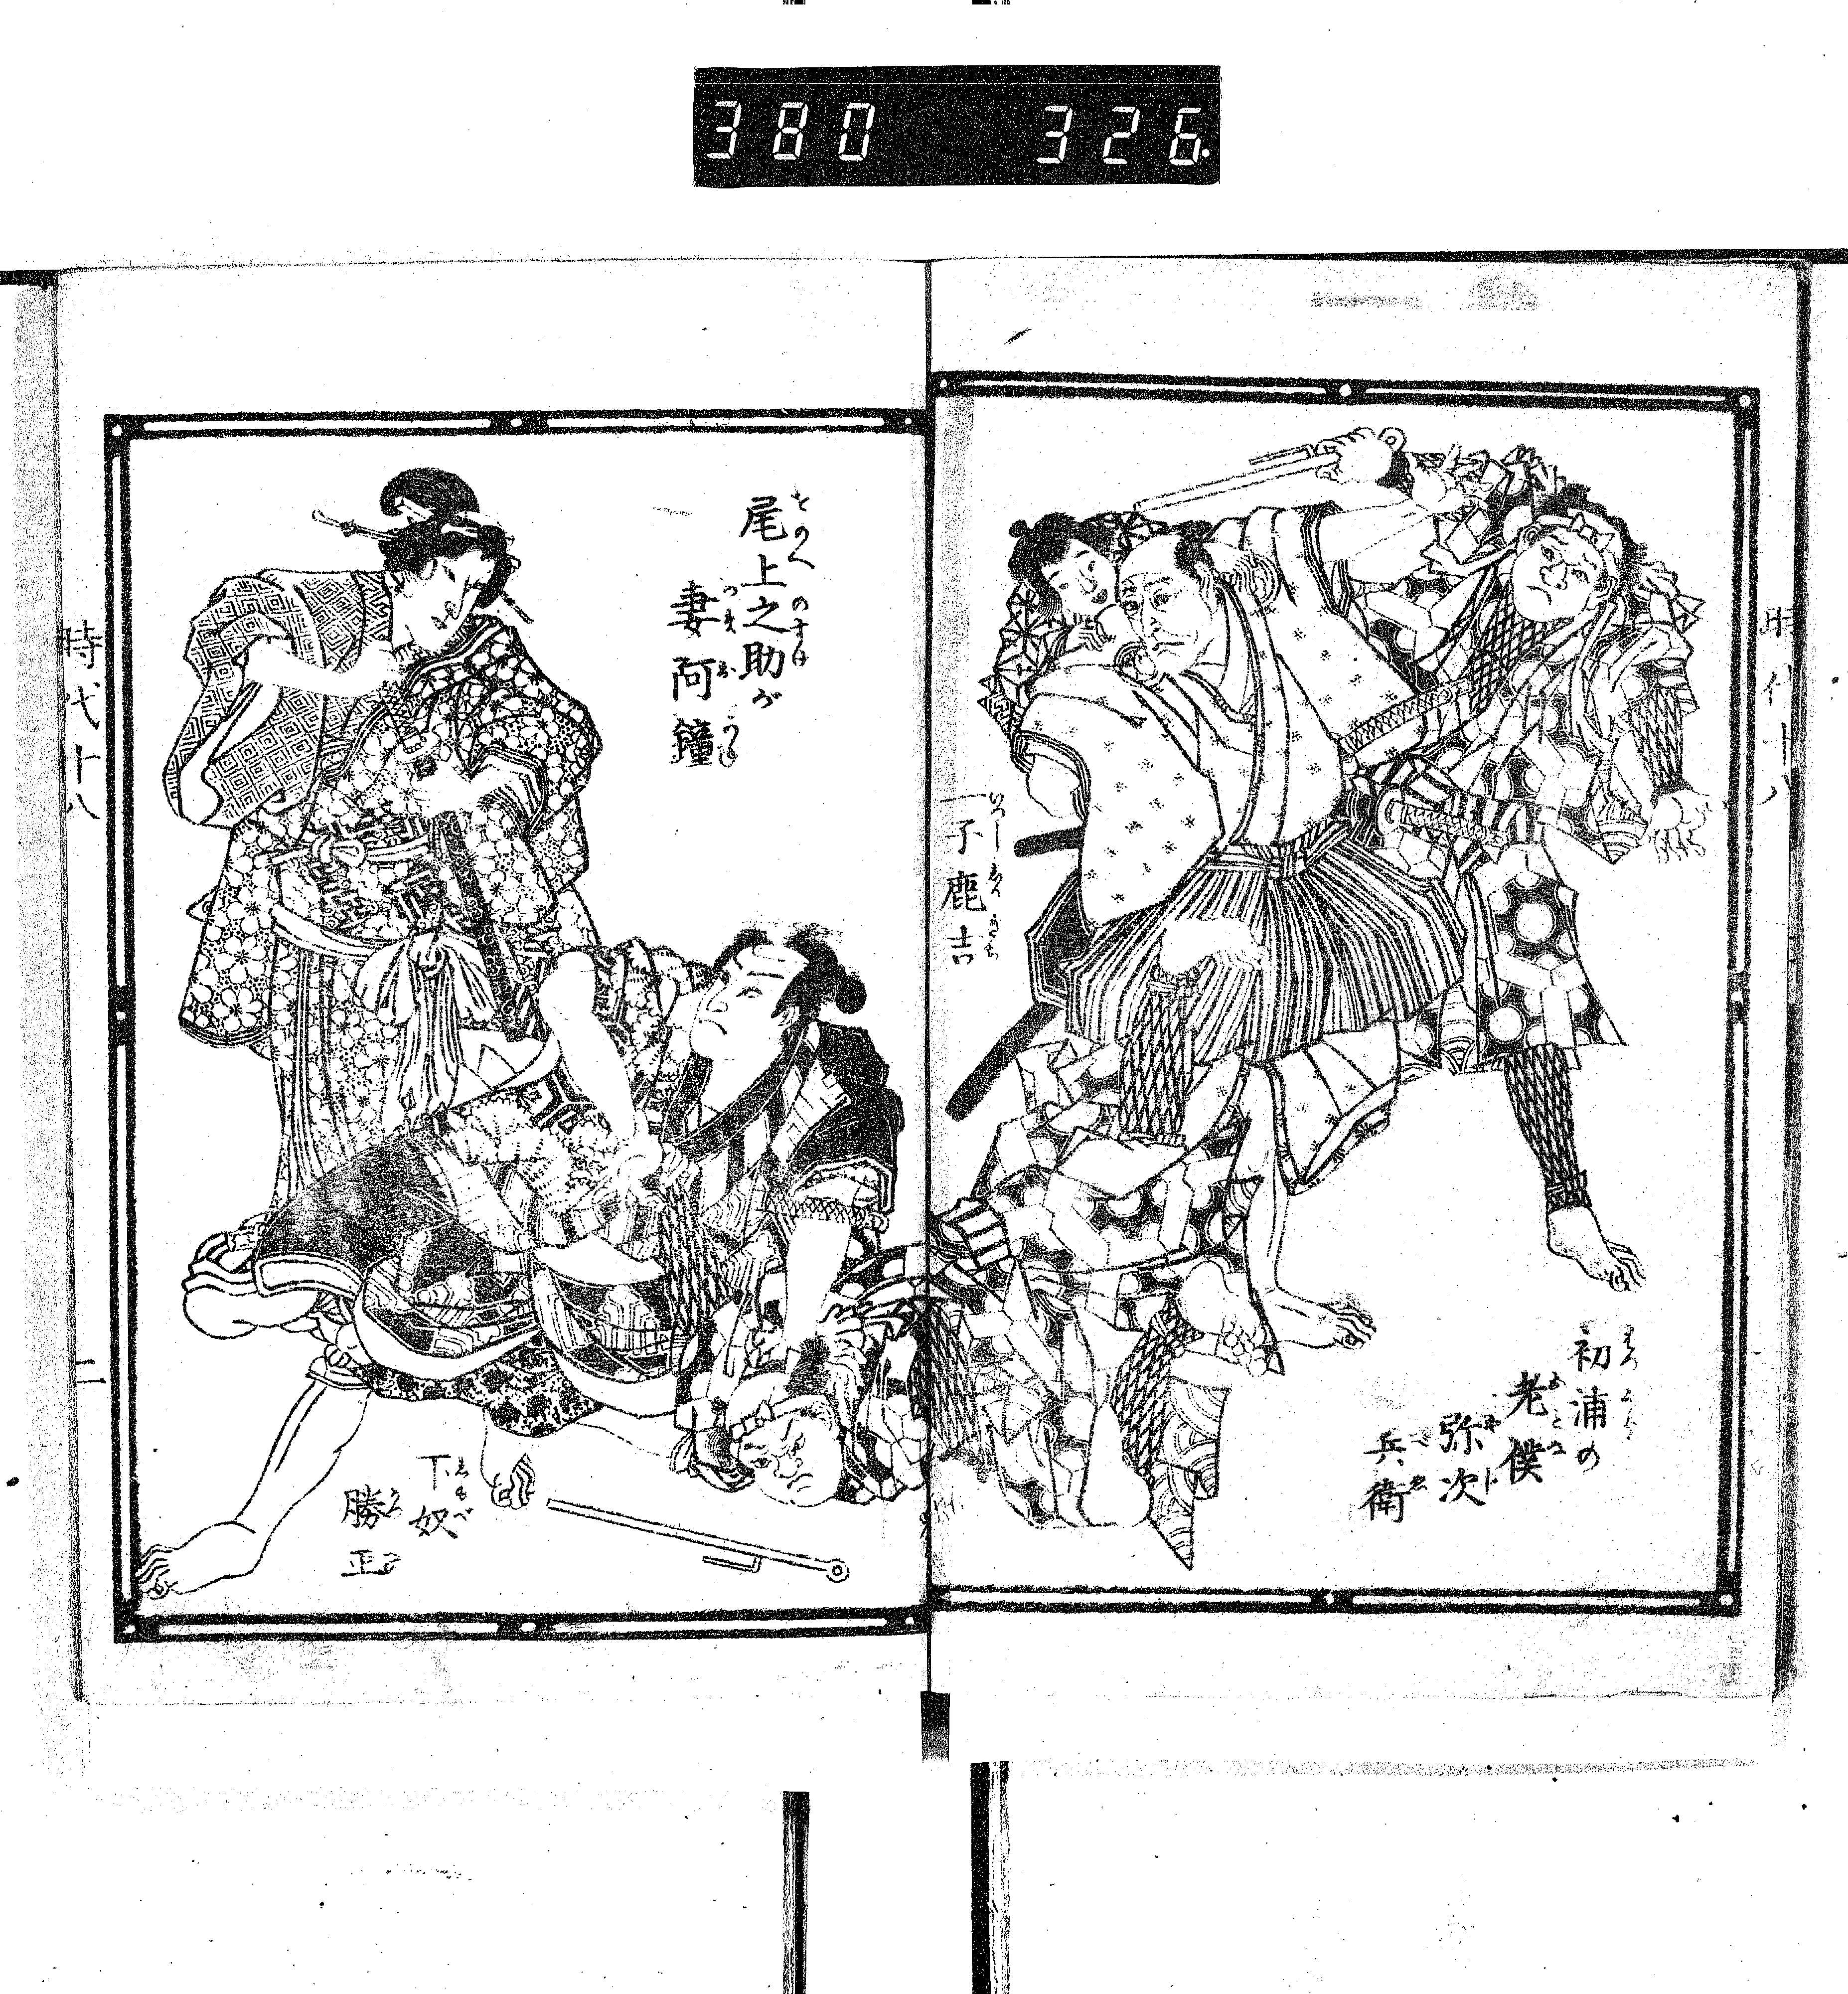 380 326
初浦の
老僕
弥次
兵衛
一子鹿吉
尾上之助が
妻阿鐘
下奴
勝正
時代十八
二
時代十八